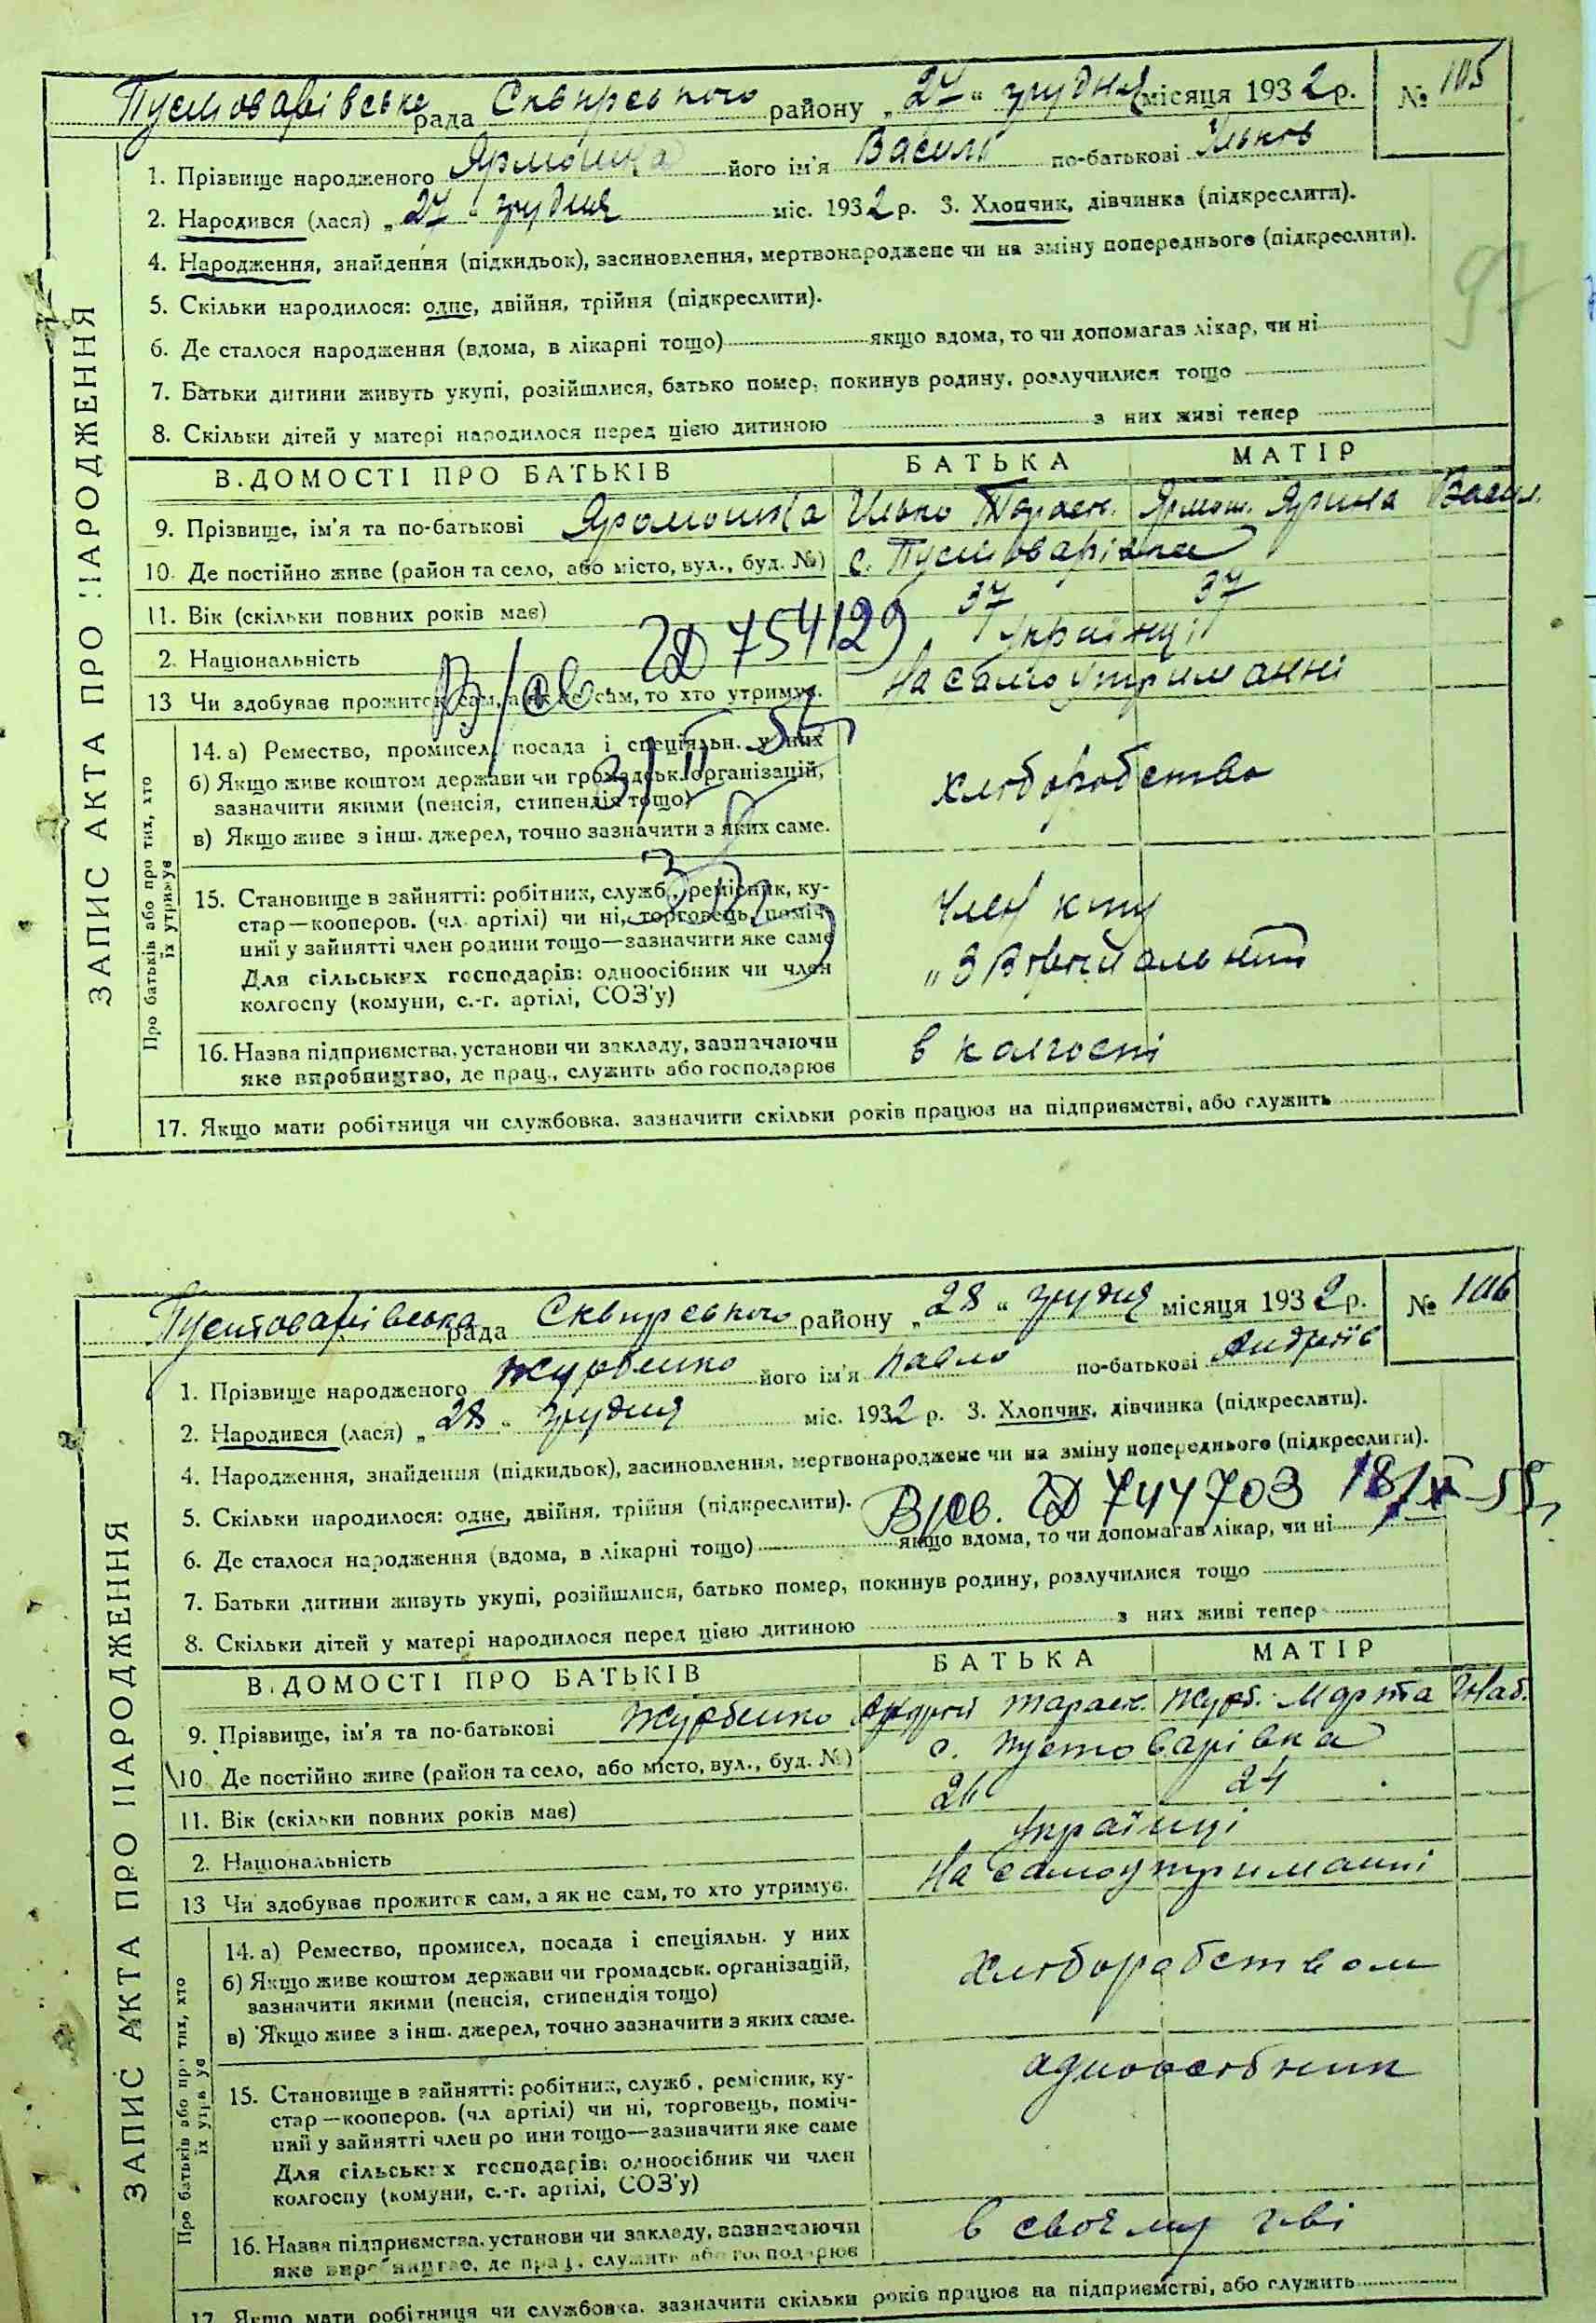 Пустоварівське рада Сквирського району „27“ грудня місяця 1932 р. № 105
1. Прізвище народженого Ярмошка його ім'я Василь по-батькові Ільков
2. Народився (лася) „27“ грудня міс. 1932 р. 3. Хлопчик, дівчинка (підкреслити).
4. Народження, знайдення (підкидьок), засиновлення, мертвонароджене чи на зміну попереднього (підкреслити).
5. Скільки народилося: одне, двійня, трійня (підкреслити).
6. Де сталося народження (вдома, в лікарні тощо) якщо вдома, то чи допомагав лікар, чи ні
7. Батьки дитини живуть укупі, розійшлися, батько помер, покинув родину, розлучилися тощо
8. Скільки дітей у матері народилося перед цією дитиною з них живі тепер
ЗАПИС АКТА ПРО НАРОДЖЕННЯ
В.ДОМОСТІ ПРО БАТЬКІВ БАТЬКА МАТІР
9. Прізвище, ім'я та по-батькові Яромошка Ілько Тараск. Ярмош. Ярина Васил.
10. Де постійно живе (район та село, або місто, вул., буд. №) с. Пустоварівка
11. Вік (скільки повних років має) 37 37
2. Національність Українці
В/св. 754129
13 Чи здобуває прожиток сам, а як не сам, то хто утримує. На самоутриманні
Про батьків або про тих, хто їх утримує
14. а) Ремество, промисел, посада і спеціяльн. у них
б) Якщо живе коштом держави чи громадськ. організацій,
зазначити якими (пенсія, стипендія тощо) хліборобство
в) Якщо живе з інш. джерел, точно зазначити з яких саме.
15. Становище в зайнятті: робітник, служб., ремісник, ку-
стар—кооперов. (чл. артілі) чи ні, торговець, поміч-
ний у зайнятті член родини тощо—зазначити яке саме
Для сільських господарів: одноосібник чи член
колгоспу (комуни, с.-г. артілі, СОЗ'у)
член
16. Назва підприємства, установи чи закладу, зазначаючи
яке виробництво, де прац., служить або господарює в колгоспі
17. Якщо мати робітниця чи службовка, зазначити скільки років працює на підприємстві, або служить
Пустоварівська рада Сквирського району „28“ грудня місяця 1932 р. № 106
1. Прізвище народженого Журбенко його ім'я Павло по-батькові Андріїв
2. Народився (лася) „28“ грудня міс. 1932 р. 3. Хлопчик, дівчинка (підкреслити).
4. Народження, знайдення (підкидьок), засиновлення, мертвонароджене чи на зміну попереднього (підкреслити).
5. Скільки народилося: одне, двійня, трійня (підкреслити). В/св. 744703
6. Де сталося народження (вдома, в лікарні тощо) якщо вдома, то чи допомагав лікар, чи ні
7. Батьки дитини живуть укупі, розійшлися, батько помер, покинув родину, розлучилися тощо
8. Скільки дітей у матері народилося перед цією дитиною з них живі тепер
ЗАПИС АКТА ПРО НАРОДЖЕННЯ
В.ДОМОСТІ ПРО БАТЬКІВ БАТЬКА МАТІР
9. Прізвище, ім'я та по-батькові Журбенко Андрій Тараск. Журб. Марта
10. Де постійно живе (район та село, або місто, вул., буд. №) с. Пустоварівка
11. Вік (скільки повних років має) 24
2. Національність Українці
13 Чи здобуває прожиток сам, а як не сам, то хто утримує. На самоутриманні
Про батьків або про тих, хто їх утримує
14. а) Ремество, промисел, посада і спеціяльн. у них
б) Якщо живе коштом держави чи громадськ. організацій,
зазначити якими (пенсія, стипендія тощо) хліборобством
в) Якщо живе з інш. джерел, точно зазначити з яких саме.
15. Становище в зайнятті: робітник, служб., ремісник, ку-
стар—кооперов. (чл артілі) чи ні, торговець, поміч-
ний у зайнятті член родини тощо—зазначити яке саме
Для сільських господарів: одноосібник чи член
колгоспу (комуни, с.-г. артілі, СОЗ'у)
одноосібник
16. Назва підприємства, установи чи закладу, зазначаючи
яке виробництво, де прац., служить або господарює в своєму г-ві
17. Якщо мати робітниця чи службовка, зазначити скільки років працює на підприємстві, або служить